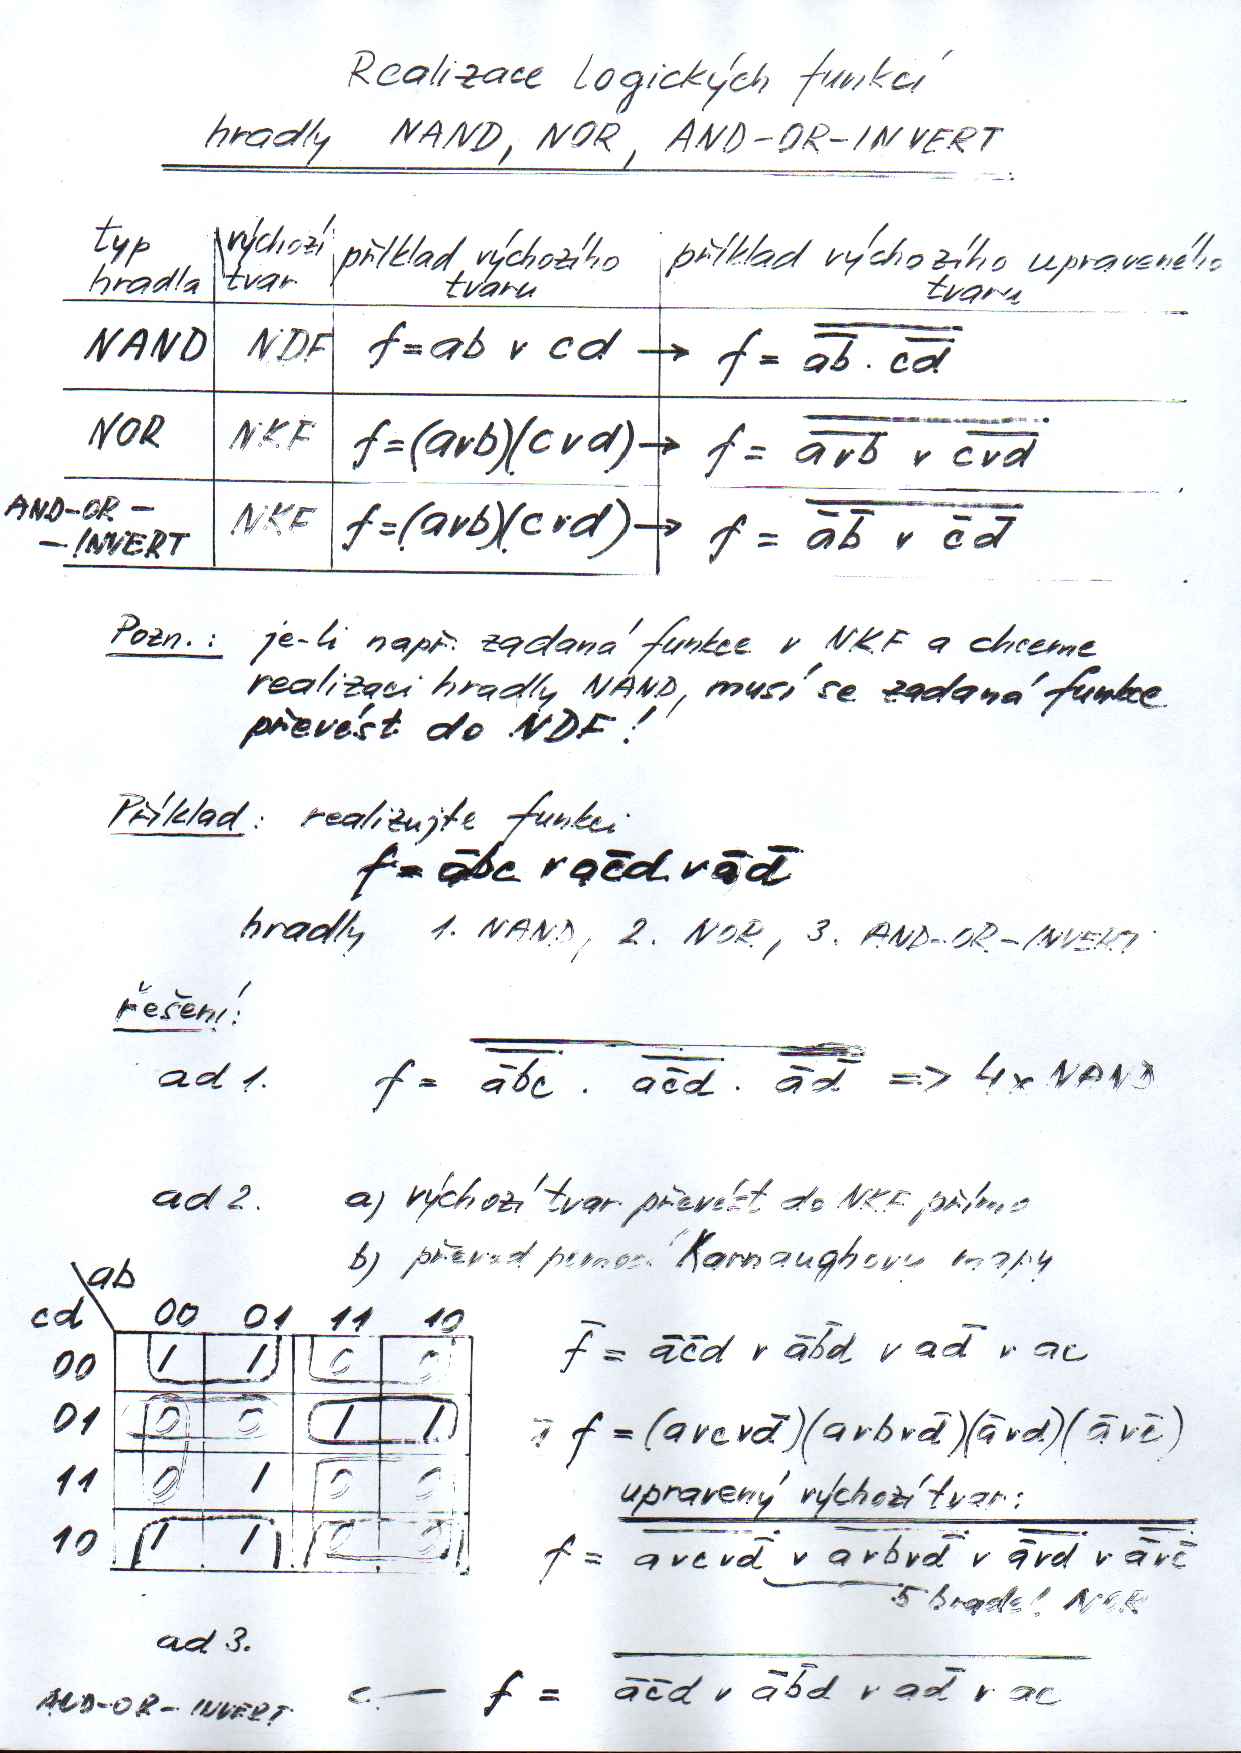 Realizace logických funkcí
hradly NAND, NOR, AND-OR-INVERT
typ hradla | výchozí tvar | příklad výchozího tvaru | příklad výchozího upraveného tvaru
NAND | NDF | f=ab v cd → | f = \overline{\overline{ab} . \overline{cd}}
NOR | NKF | f=(avb)(cvd) → | f = \overline{\overline{avb} v \overline{cvd}}
AND-OR--INVERT | NKF | f=(avb)(cvd) → | f = \overline{āb̄ v c̄d̄}
Pozn.: je-li např. zadaná funkce v NKF a chceme
realizaci hradly NAND, musí se zadaná funkce
převést do NDF!
Příklad: realizujte funkci
f= ābc v ac̄d v ād̄
hradly 1. NAND, 2. NOR, 3. AND-OR-INVERT
řešení:
ad 1. f = \overline{\overline{ābc} . \overline{ac̄d} . \overline{ād̄}} => 4x NAND
ad 2. a) výchozí tvar převést do NKF přímo
b) převod pomocí Karnaughovy mapy
ab
cd 00 01 11 10
00 1 1 0 0
01 0 0 1 1
11 0 1 0 0
10 1 1 0 0
f̄ = āc̄d v āb̄d v ad̄ v ac
f =(avcvd̄)(avbvd̄)(āvd)(āvc̄)
upravený výchozí tvar:
f = \overline{\overline{avcvd̄} v \overline{avbvd̄} v \overline{āvd} v \overline{āvc̄}}
5 hradel NOR
ad 3.
AND-OR-INVERT f = \overline{āc̄d v āb̄d v ad̄ v ac}